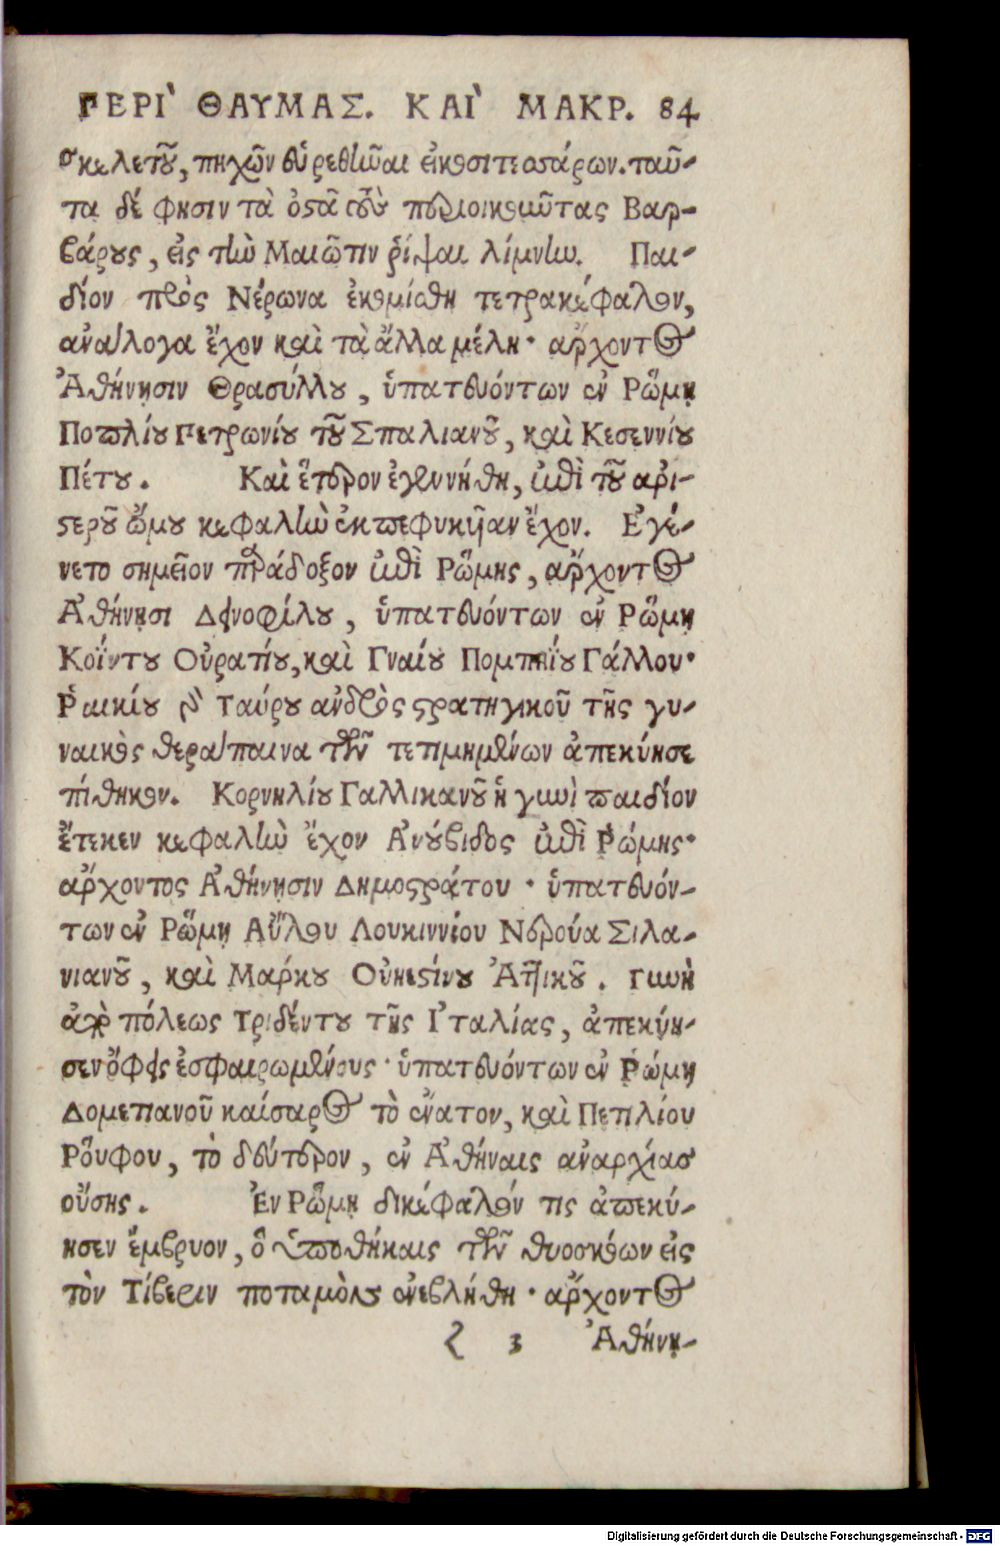 ΠΕΡΙ ΘΑΥΜΑΣ. ΚΑΙ ΜΑΚΡ. 84
σκελετοῦ, πηχῶν εὑρεθῆναι εἰκοσιτεσσάρων. ταῦ-
τα δέ φησιν τὰ ὀστᾶ τοὺς περιοικοῦντας Βαρ-
βάρους, εἰς τὴν Μαιῶτιν ῥίψαι λίμνην. Παι-
δίον πρὸς Νέρωνα ἐκομίσθη τετρακέφαλον,
ἀνάλογα ἔχον καὶ τὰ ἄλλα μέλη· ἄρχοντος
Ἀθήνησιν Θρασύλλου, ὑπατευόντων ἐν Ῥώμῃ
Ποπλίου Πετρωνίου τοῦ Σπαλιανοῦ, καὶ Κεσεννίου
Πέτου. Καὶ ἕτερον ἐγεννήθη, ἐπὶ τοῦ ἀρι-
στεροῦ ὤμου κεφαλὴν ἐκπεφυκῆαν ἔχον. Ἐγέ-
νετο σημεῖον παράδοξον ἐπὶ Ῥώμης, ἄρχοντος
Ἀθήνησι Δεινοφίλου, ὑπατευόντων ἐν Ῥώμῃ
Κοΐντου Οὐρατίου, καὶ Γναίου Πομπηΐου Γάλλου·
Ῥαικίου Ταύρου ἀνδρὸς στρατηγικοῦ τῆς γυ-
ναικὸς θεράπαινα τῶν τετιμημένων ἀπεκύησε
πίθηκον. Κορνηλίου Γαλλικανοῦ ἡ γυνὴ παιδίον
ἔτεκεν κεφαλὴν ἔχον Ἀνούβιδος ἐπὶ Ῥώμης·
ἄρχοντος Ἀθήνησιν Δημοστράτου · ὑπατευόν-
των ἐν Ῥώμῃ Αὔλου Λουκιννίου Νερούα Σιλα-
νιανοῦ, καὶ Μάρκου Οὐηστίνου Ἀττικοῦ. Γυνὴ
ἀπὸ πόλεως Τριδέντου τῆς Ἰταλίας, ἀπεκύη-
σεν ὄφεις ἐσφαιρωμένους · ὑπατευόντων ἐν Ῥώμῃ
Δομετιανοῦ καίσαρος τὸ ἔνατον, καὶ Πετιλίου
Ῥούφου, τὸ δεύτερον, ἐν Ἀθήναις ἀναρχίας
οὔσης. Ἐν Ῥώμῃ δικέφαλόν τις ἀπεκύ-
ησεν ἔμβρυον, ὃ ὑποθήκαις τῶν θυοσκόων εἰς
τὸν Τίβεριν ποταμὸν ἐνεβλήθη · ἄρχοντος
3 Ἀθήνη-
Digitalisierung gefördert durch die Deutsche Forschungsgemeinschaft - DFG